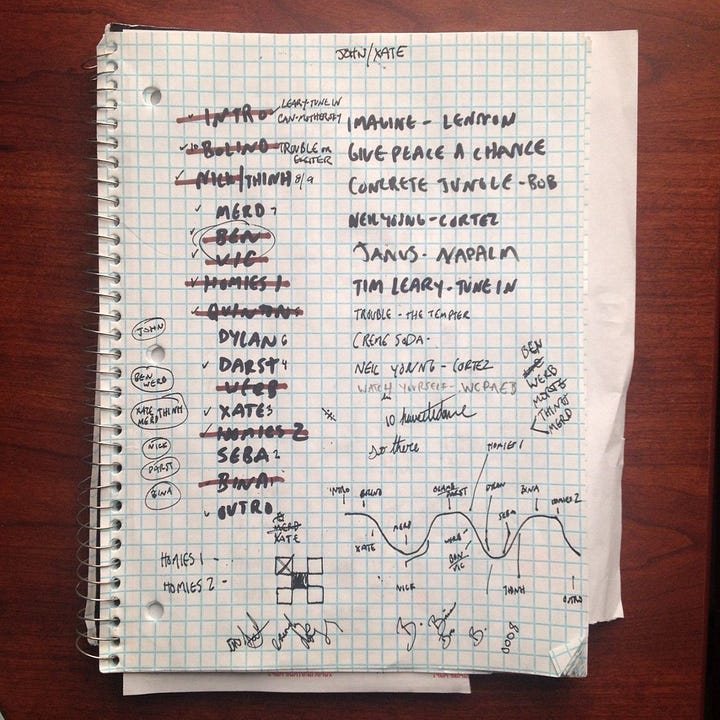 JOHN/XATE
INTRO LEARY-TUNE IN
BOLINO TROUBLE OR
EXCITER
NICK/THINH 8/9
MERD 7
BEN
VIC
HOMIES 1
QUINTON
DYLAN 6
DARST 4
WERB
XATE 3
HOMIES 2
SEBA 2
BINA 1
OUTRO
MERD
XATE
IMAGINE - LENNON
GIVE PEACE A CHANCE
CONCRETE JUNGLE - BOB
NEIL YOUNG - CORTEZ
JANUS - NAPALM
TIM LEARY - TUNE IN
TROUBLE - THE TEMPTER
CREME SODA -
NEIL YOUNG - CORTEZ
WATCH YOURSELF -
so there
JOHN
BEN
WERD
XATE
MERD THINH
NICK
DARST
BINA
BEN
WERB
MORTE
THINH
MERD
HOMIES 1
INTRO
BOLINO
DARST
DYLAN
SEBA
BINA
HOMIES 2
XATE
MERD
WERB
BEN
VIC
NICK
THINH
OUTRO
HOMIES 1 -
HOMIES 2 -